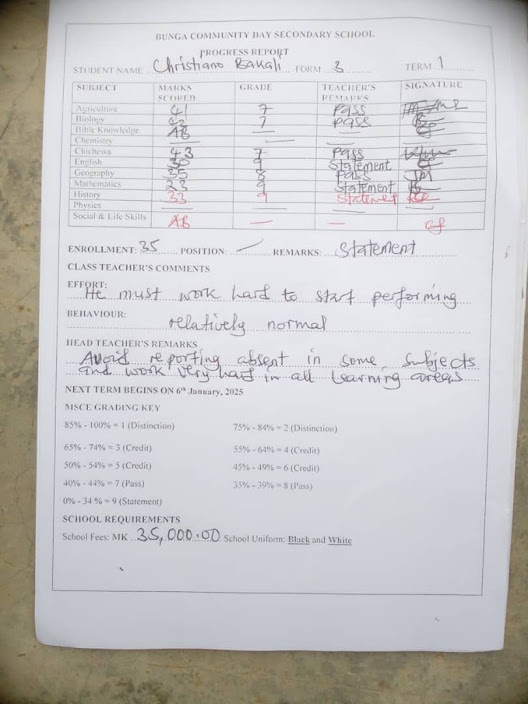 BUNGA COMMUNITY DAY SECONDARY SCHOOL
PROGRESS REPORT
STUDENT NAME Christiano Bakali FORM 3 TERM 1
SUBJECT MARKS SCORED GRADE TEACHER'S REMARKS SIGNATURE
Agriculture 41 7 Pass
Biology 42 7 Pass
Bible Knowledge AB — —
Chemistry — — —
Chichewa 43 7 Pass
English 30 9 Statement
Geography 35 8 Pass
Mathematics 23 9 Statement
History 33 9 Statement
Physics — — —
Social & Life Skills AB — —
ENROLLMENT: 35 POSITION: — REMARKS: Statement
CLASS TEACHER'S COMMENTS
EFFORT: He must work hard to start performing
BEHAVIOUR: relatively normal
HEAD TEACHER'S REMARKS
Avoid reporting absent in some subjects
and work very hard in all learning areas
NEXT TERM BEGINS ON 6th January, 2025
MSCE GRADING KEY
85% - 100% = 1 (Distinction) 75% - 84% = 2 (Distinction)
65% - 74% = 3 (Credit) 55% - 64% = 4 (Credit)
50% - 54% = 5 (Credit) 45% - 49% = 6 (Credit)
40% - 44% = 7 (Pass) 35% - 39% = 8 (Pass)
0% - 34 % = 9 (Statement)
SCHOOL REQUIREMENTS
School Fees: MK 35,000.00 School Uniform: Black and White